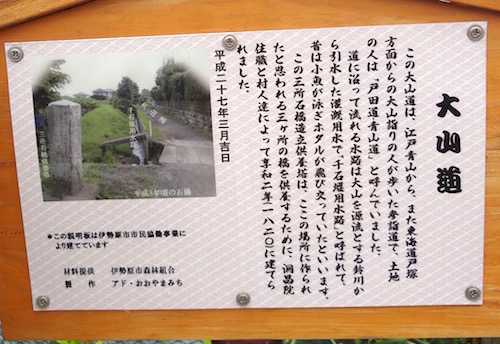 大山道
この大山道は、江戸青山から、また東海道戸塚
方面からの大山詣りの人が歩いた参詣道で、土地
の人は、「戸田道青山道」と呼んでいました。
道に沿って流れる水路は大山を源流とする鈴川か
ら引水した灌漑用水で「千石堰用水路」と呼ばれて、
昔は小魚が泳ぎホタルが飛び交っていたといいます。
この三所石橋造立供養塔は、ここの場所に作られ
たと思われる三ヶ所の橋を供養するために、洞昌院
住職と村人達によって享和二年(一八〇二)に建てら
れました。
平成二十七年三月吉日
三所石橋供養塔
千石堰用水路
平成8年頃の石橋
●この説明板は伊勢原市市民協働事業に
より建てています
材料提供 伊勢原市森林組合
製作 アド・おおやまみち